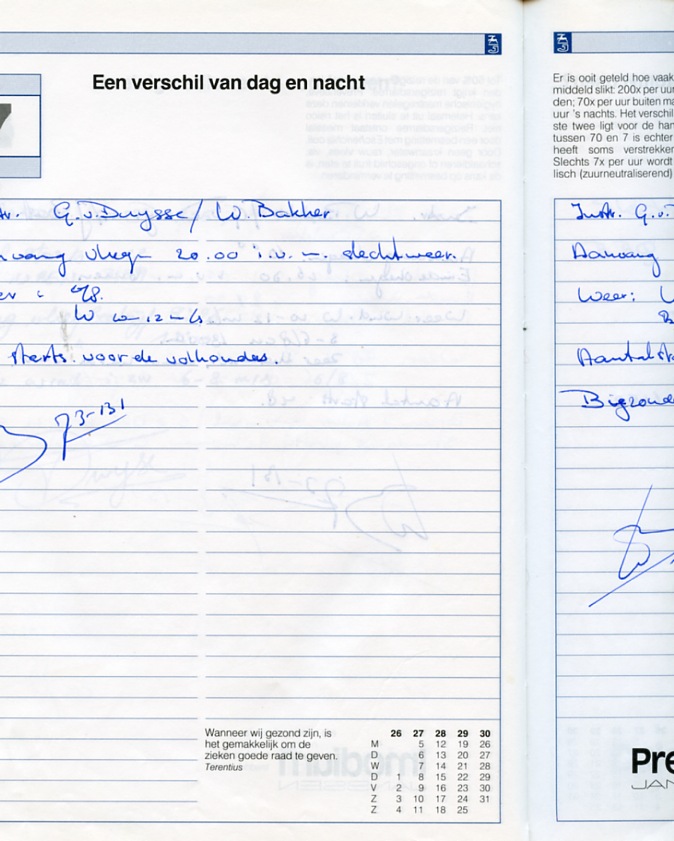 Een verschil van dag en nacht
7
G.v.Duysse / W. Bakker
vang vlieg 20.00 i.v.m. slechtweer.
W
starts voor de volhoudes.
73-131
Wanneer wij gezond zijn, is
het gemakkelijk om de
zieken goede raad te geven.
Terentius
26 27 28 29 30
M 5 12 19 26
D 6 13 20 27
W 7 14 21 28
D 1 8 15 22 29
V 2 9 16 23 30
Z 3 10 17 24 31
Z 4 11 18 25
Er is ooit geteld hoe vaak
middeld slikt: 200x per uur
den; 70x per uur buiten ma
uur 's nachts. Het verschil
ste twee ligt voor de han
tussen 70 en 7 is echter
heeft soms verstrekken
Slechts 7x per uur wordt
lisch (zuurneutraliserend)
Instr. G.v.
Aanvang
Weer:
Aantal st
Bijzonde
Pre
JAN